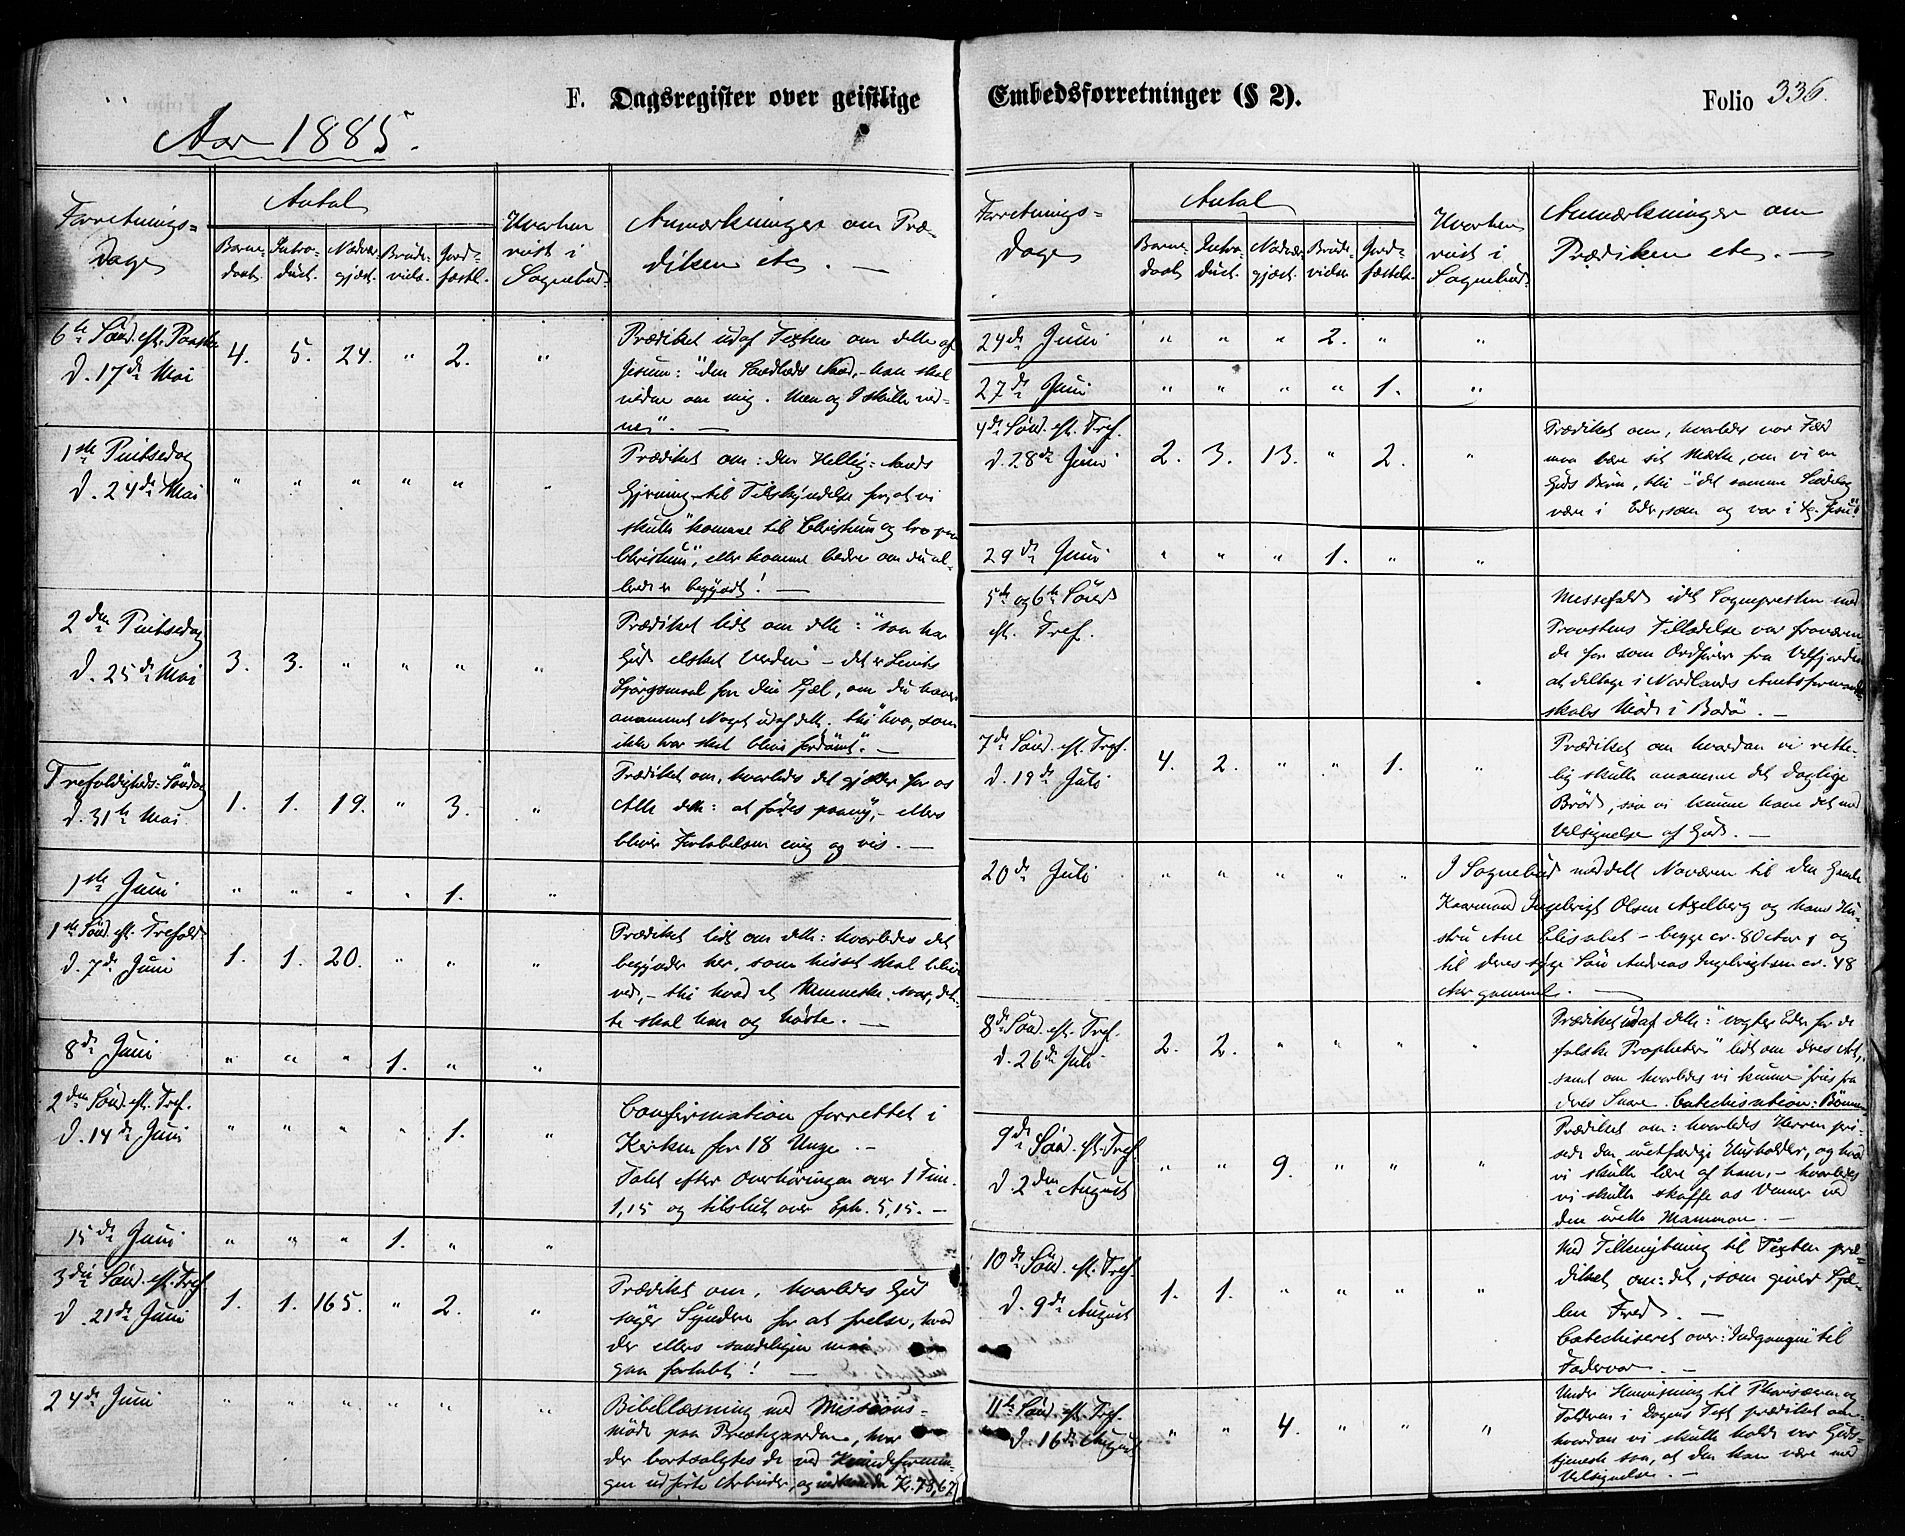 F. Dagsregister over geistlige
Aar 1885.
Forretnings=
Dage
Antal
Barne-
daab.
Intro-
duct.
Nadver-
gjæst.
Brude-
vielse.
Jord-
fæstl.
Hvorhen
reist i
Sognebud.
Anmærkninger om Præ-
diken etc. —
6te Sönd. eft. Paaske
d. 17de Mai
4. 5. 24. " 2. "
Prædiket udaf Texten om dette af
Jesum: "den Sandheds Aand, - han skal
vidne om mig. Men og I skulle vid-
ne". —
1ste Pintsedag
d. 24de Mai
" " " " " "
Prædiket om: den Hellig: Aands
Gjerning til Tilskyndelse for, at vi
skulle "komme til Christum og tro paa
Christum", eller komme bedre om du al-
lerede er begyndt! —
2den Pintsedag
d. 25de Mai
3. 3. " " " "
Prædiket lidt om dette: "saa har
Gud elsket Verden" - det er Livets
Spörgsmaal for din Sjæl, om du haver
anammet Noget udaf dette. thi "hvo, som
ikke tror skal blive fordömt". —
Trefoldigheds-Söndag
d. 31te Mai.
1. 1. 19. " 3. "
Prædiket om, hvorledes det gjælder for os
Alle dette: at födes paany, - ellers
bliver Fortabelsen evig og vis. —
1ste Juni
" " " " 1. "
1ste Sönd. eft. Trefold:
d. 7de Juni
1. 1. 20. " " "
Prædiket lidt om dette: hvorledes det
begynder her, som hisset skal blive
ved, - thi hvad et Menneske saar, det-
te skal han og höste. —
8de Juni
" " " 1. " "
2den Sönd. eft. Tref.
d. 14de Juni
" " " " 1. "
Confirmation forrettet i
Kirken for 18 Unge. —
Talet efter Overhöringen over 1 Tim.
1,15 og tilslut over Eph. 5,15. —
15de Juni
" " " 1. " "
3die Sönd. eft. Tref.
d. 21de Juni
1. 1. 165. " 2. "
Prædiket om, hvorledes Gud
söger Syndere for at frelse, hvad
der ellers sandeligen maa
gaa fortabt! —
24de Juni
" " " " " "
Bibellæsning med Missions-
möde paa Præstgaarden, hvor
der bortsolgtes de ved Kvindeforenin-
gen udförte Arbeider, og indkom da Kr. 78,67.
Embedsforretninger (§ 2).
Folio 336.
Forretnings=
Dage
Antal
Barne-
daab.
Intro-
duct.
Nadver-
gjæst.
Brude-
vielse.
Jord-
fæstels.
Hvorhen
reist i
Sognebud.
Anmærkninger om
Prædiken etc. —
24de Juni
" " " 2. " "
27de Juni
" " " " 1. "
4de Sönd. eft. Tref.
d. 28de Juni
2. 3. 13. " 2. "
Prædiket om, hvorledes vor Færd
maa bære sit Mærke, om vi er
Guds Börn, thi - "det samme Sindelag
være i Eder, som og var i Xp. Jesu".
29de Juni
" " " 1. " "
5te og 6te Sönd
eft. Tref.
Messefald idet Sognepresten med
Provstens Tilladelse var fraværen-
de for som Ordförer fra Velfjorden
at deltage i Nordlands Amtsformand-
skabs Möde i Bodö. —
7de Sönd. eft. Tref.
d. 19de Juli
4. 2. " " 1. "
Prædiket om hvordan vi rette-
lig skulle anamme det daglige
Bröd, saa vi kunne have det med
Velsignelse af Gud. —
20de Juli
" " " " "
I Sognebud meddelt Nadveren til den Gamle
Kaarmand Ingebrigt Olsen Axelberg og hans Hu-
stru Ane Elisabet - begge er. 80 Aar, og
til deres syge Sön Andreas Ingebrigtsen er. 48
Aar gammel. —
8de Sönd. eft. Tref.
d. 26de Juli
2. 2. " " " "
Prædiket udaf dette: "vogter Eder for de
falske Propheter" lidt om deres Art,
samt om hvorledes vi kunne fries fra
deres Snare. Catechisation: Bönnen
9de Sönd. eft. Tref
d. 2den August
" " 9. " " "
Prædiket om: hvorledes Herren pri-
sede den uretfærdige Husholder, og hvad
vi skulle lære af ham, - hvorledes
vi skulle skaffe os Venner ved
den urette Mammon. —
10de Sönd. eft. Tref
d. 9de August
1. 1. " " " "
Med Tilknytning til Texten præ-
diket om: det, som giver Sjæ-
len Fred. —
Catechiseret over: "Indgangen" til
Fadervor. —
11te Sönd. eft. Tref.
d. 16de August
" " 4. " " "
Under Henvisning til Pharisæeren og
Tolderen i Dagens Text prædiket om:
hvordan vi skulle holde vor Guds-
tjeneste saa, at den kan være med
Velsignelse. —